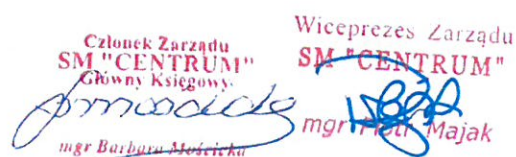 Członek Zarządu
SM "CENTRUM"
Główny Księgowy
mgr Barbara Mościcka
Wiceprezes Zarządu
SM "CENTRUM"
mgr Piotr Majak